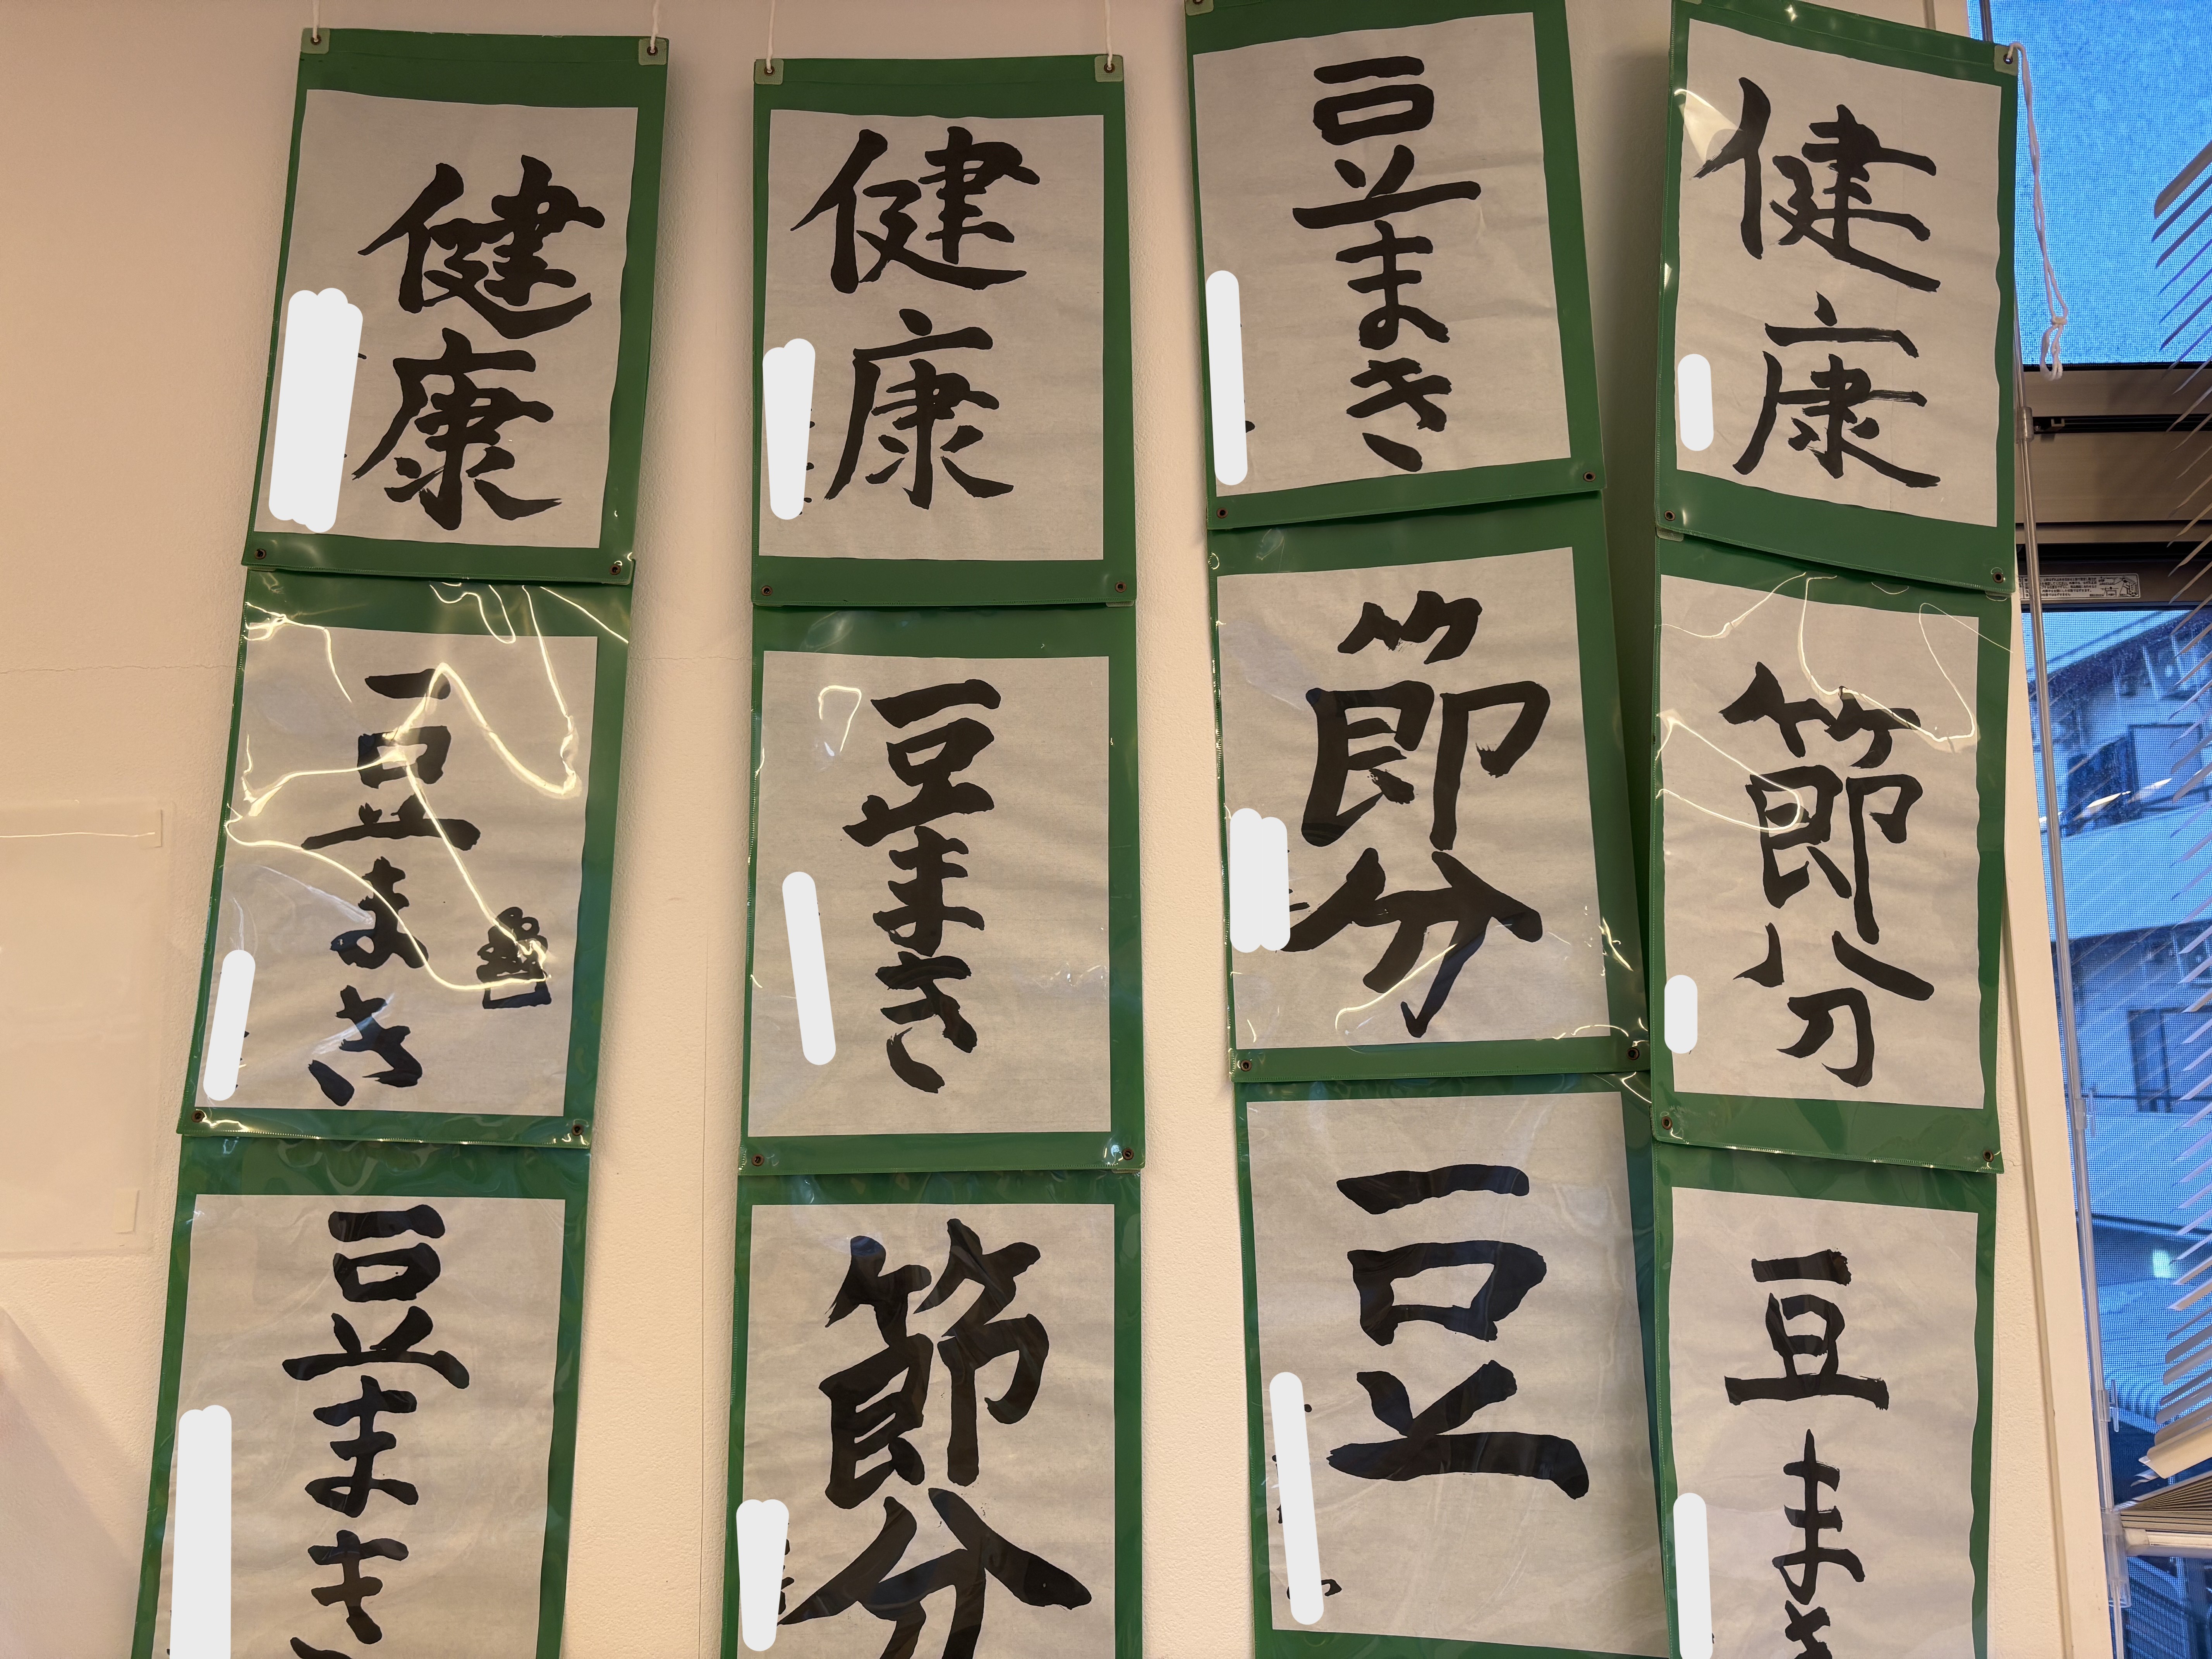 健康
豆まき
豆まき
健康
豆まき
節分
豆まき
節分
豆
健康
節分
豆まき